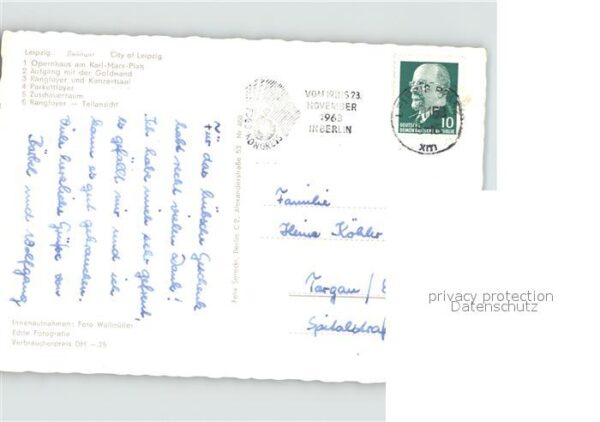 Leipzig
City of Leipzig
1 Opernhaus am Karl-Marx-Platz
2 Aufgang mit der Goldwand
3 Rangfoyer und Konzertsaal
4 Parkettfoyer
5 Zuschauerraum
6 Rangfoyer — Teilansicht
Für das hübsche Geschenk
habt recht vielen Dank!
Ich habe mich sehr gefreut,
es gefällt mir und ich
kann es gut gebrauchen.
Viele herzliche Grüße von
Bärbel und Wolfgang
Innenaufnahmen: Foto Wallmüller
Echte Fotografie
Verbraucherpreis DM —.25
Berlin C 2, Alexanderstraße 53
KONGRESS
VOM 19. BIS 23.
NOVEMBER
1963
IN BERLIN
DEUTSCHE
10
XM
Familie
Heinz Köhler
Torgau/
privacy protection
Datenschutz